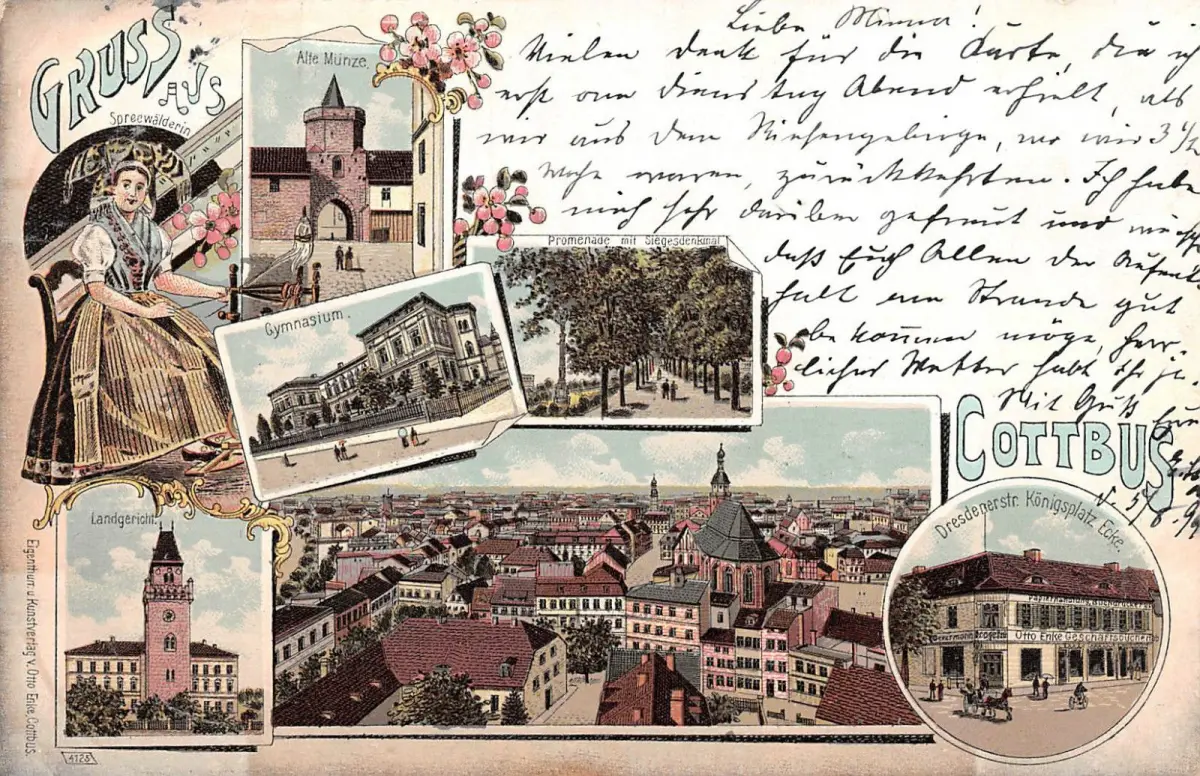 GRUSS
AUS
Spreewälderin
Alte Münze.
Gymnasium.
Promenade mit Siegesdenkmal
Landgericht.
COTTBUS
Dresdenerstr. Königsplatz Ecke.
Otto Enke Geschäftsbücher
Eigenthum u. Kunstverlag v. Otto Enke, Cottbus.
4123
Liebe Minna!
Vielen Dank für die Karte, die ich
erst am Dienstag Abend erhielt, als
wir aus dem Riesengebirge, wo wir 3 1/2
Woche waren, zurückkehrten. Ich habe
mich sehr darüber gefreut und
daß Euch Allen der Aufent
halt am Strande gut
bekommen möge, herr-
liches Wetter habt Ihr ja.
Mit Gruß